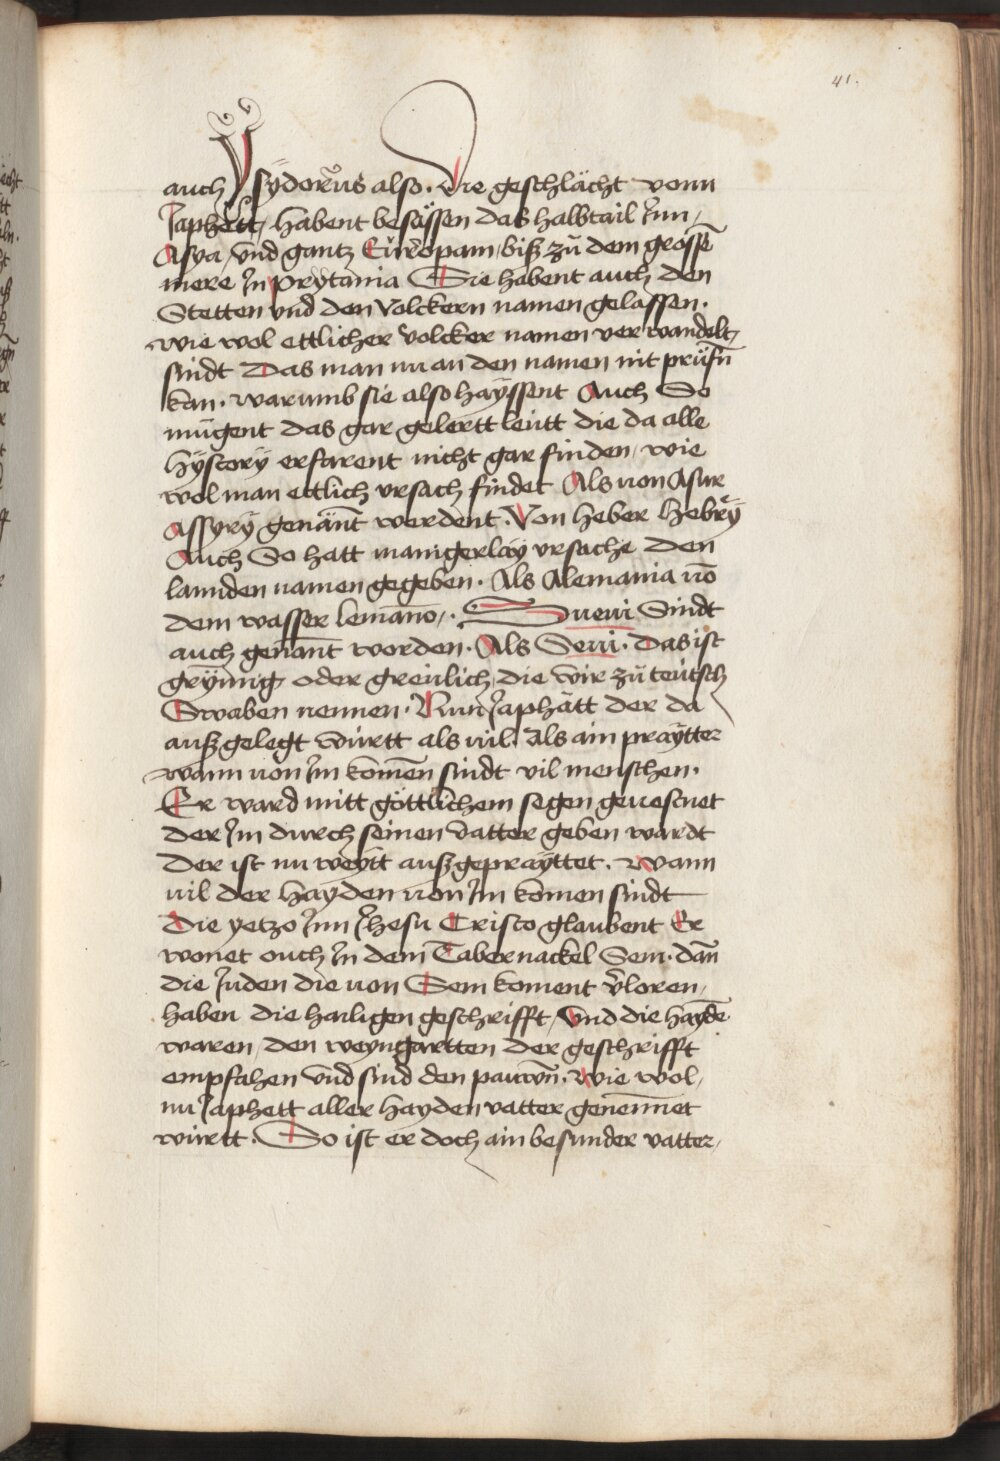 41.
auch Ysÿdorus also. Die geschlächt vonn
Japhett, habent besässen das halbtail Jnn,
Asya, vnd gantz Eŭropam, biß zŭ dem grosse
mere Jn prÿtania Sie habent auch den
Stetten vnd den Volckern namen gelassen.
wie wol ettlicher volcker namen verwandelt,
sindt Das man nu an den namen nit prüfn̄
kan. warumb sie also haÿssent Auch So
mŭgent das gar gelertt leŭtt die da alle
hÿstorÿ erfarent nicht gar finden, wie
wol man ettlich vrsach findet Als von Asur
Assyrÿ genän̄t werdent. Von heber hebreÿ
Auch So hatt manigerlaÿ vrsache den
lannden namen gegeben. Als Alemania vō
dem wasser lemāno,. Sueui Sindt
auch genān̄t worden. Als Seui. Das ist
grÿmig oder greŭlich, die wir zŭ teŭtsch
Swaben nennen. Nun Japhätt der da
auß gelegt wŭrtt als vil. Als ain praÿtter
wann von Jm komēn sindt vil menschen.
Er ward mitt göttlichem segen geuestnet
der Jm durch seinen vatter geben wardt
Der ist nu weÿtt außgepraÿttet. Wann
vil der haÿden von Jm komen sindt
Die yetzo Jnn Jhesu Cristo glaubent Er
wonet ouch Jn dem Tabernackel Sem. dan̄
die Juden die von Sem koment v̄loren,
haben die hailigen geschrifft, vnd die haÿdē
waren, den weyngartten der geschrifft
empfahen vnd sind den pawn̄. Wie wol,
nu Japhett aller hayden vatter genen̄net
wŭrtt. So ist er doch ain besunder vatter,